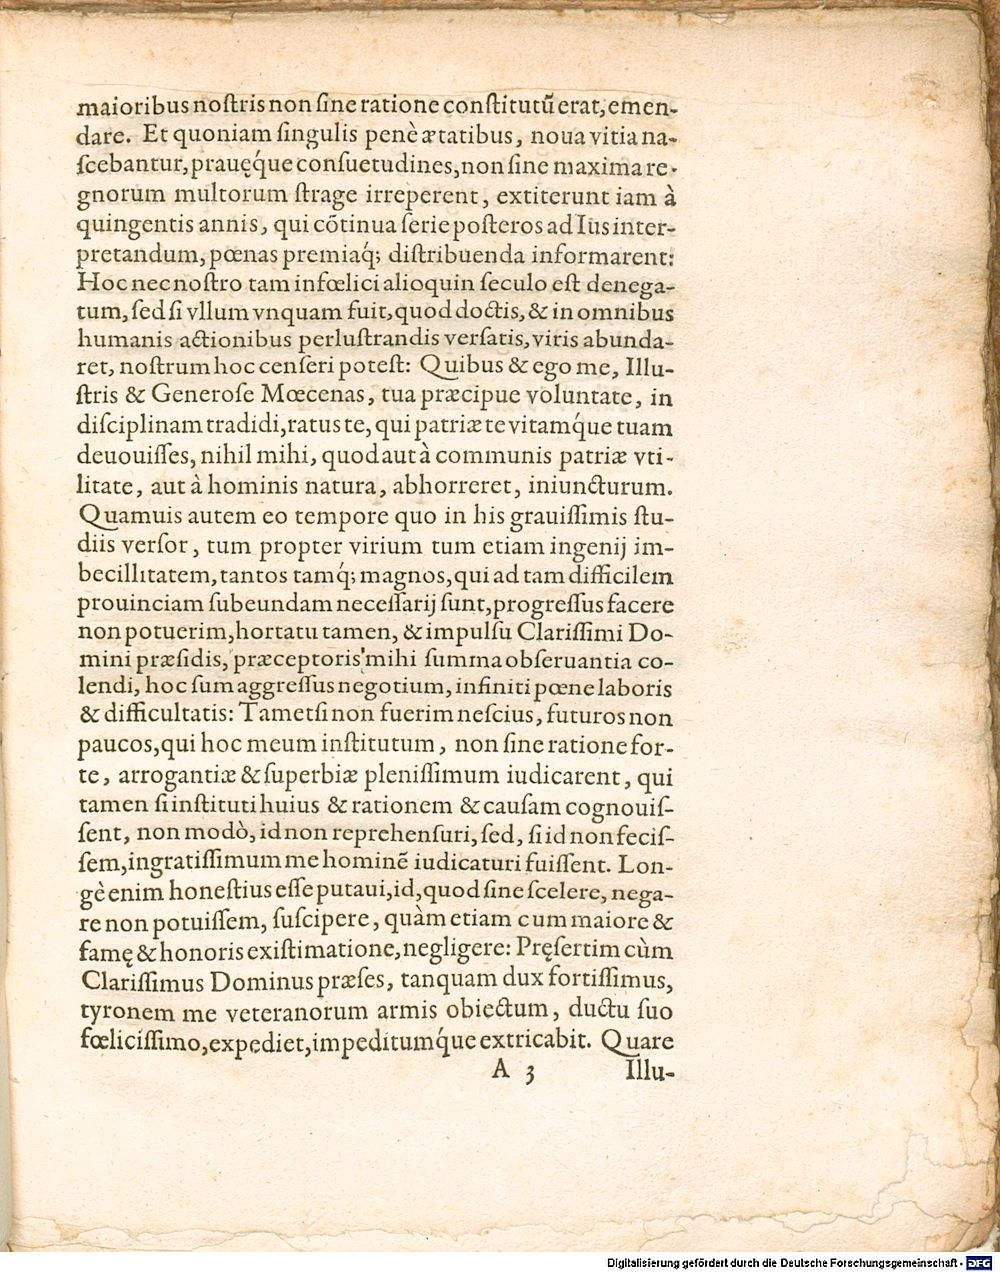 maioribus noſtris non ſine ratione conſtitutũ erat, emen-
dare. Et quoniam ſingulis penè ætatibus, noua vitia na-
ſcebantur, prauęq́ue conſuetudines, non ſine maxima re-
gnorum multorum ſtrage irreperent, extiterunt iam à
quingentis annis, qui cõtinua ſerie poſteros ad Ius inter-
pretandum, pœnas premiaq́; diſtribuenda informarent:
Hoc nec noſtro tam infœlici alioquin ſeculo eſt denega-
tum, ſed ſi vllum vnquam fuit, quod doctis, & in omnibus
humanis actionibus perluſtrandis verſatis, viris abunda-
ret, noſtrum hoc cenſeri poteſt: Quibus & ego me, Illu-
ſtris & Generoſe Mœcenas, tua præcipue voluntate, in
diſciplinam tradidi, ratus te, qui patriæ te vitamq́ue tuam
deuouiſſes, nihil mihi, quod aut à communis patriæ vti-
litate, aut à hominis natura, abhorreret, iniuncturum.
Quamuis autem eo tempore quo in his grauiſſimis ſtu-
diis verſor, tum propter virium tum etiam ingenij im-
becillitatem, tantos tamq́; magnos, qui ad tam difficilem
prouinciam ſubeundam neceſſarij ſunt, progreſſus facere
non potuerim, hortatu tamen, & impulſu Clariſſimi Do-
mini præſidis, præceptoris mihi ſumma obſeruantia co-
lendi, hoc ſum aggreſſus negotium, infiniti pœne laboris
& difficultatis: Tametſi non fuerim neſcius, futuros non
paucos, qui hoc meum inſtitutum, non ſine ratione for-
te, arrogantiæ & ſuperbiæ pleniſſimum iudicarent, qui
tamen ſi inſtituti huius & rationem & cauſam cognouiſ-
ſent, non modò, id non reprehenſuri, ſed, ſi id non feciſ-
ſem, ingratiſſimum me hominẽ iudicaturi fuiſſent. Lon-
gè enim honeſtius eſſe putaui, id, quod ſine ſcelere, nega-
re non potuiſſem, ſuſcipere, quàm etiam cum maiore &
famę & honoris exiſtimatione, negligere: Pręſertim cùm
Clariſſimus Dominus præſes, tanquam dux fortiſſimus,
tyronem me veteranorum armis obiectum, ductu ſuo
fœliciſſimo, expediet, impeditumq́ue extricabit. Quare
A 3 Illu-
Digitalisierung gefördert durch die Deutsche Forschungsgemeinschaft - DFG